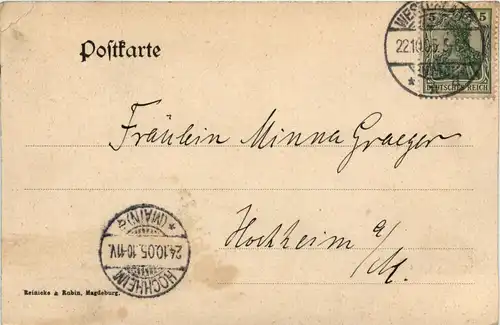 Postkarte
5 5
22.10.05.5-6
DEUTSCHES REICH
Fräulein Minna Graeger
Hochheim a/
M.
HOCHHEIM
24.10.05.10-11V.
* (MAIN) a
Reinicke & Rubin, Magdeburg.